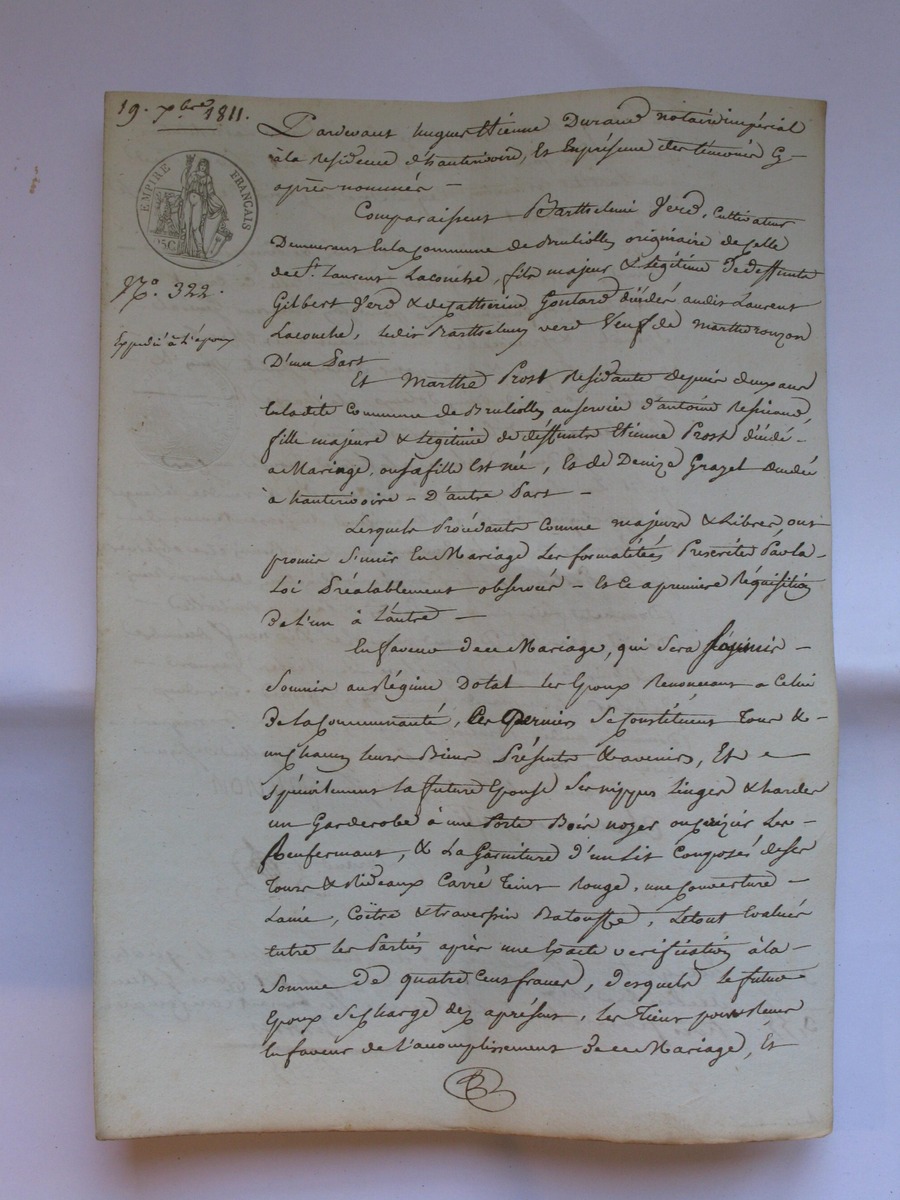 19. xbre 1811.
EMPIRE FRANÇAIS
25C
No. 322.
Expedié à l'époux
Pardevant hugues Etienne Durand notaire imperial
à la residence d'hauterivoire, Et En présence des temoins Cy
après nommés —
Comparaissent Barthelemi Verd, Cultivateur
Demeurant En la commune de Brulliolles originaire de Celle
de St. Laurent Lacouche, fils majeur & Légitime de deffunts
Gilbert Verd & de Catherine Goutard décédés audit Laurent
Lacouche, ledit Barthelemy verd Veuf de marthe
D'une Part
Et Marthe Prost Residante depuis deux ans
En ladite Commune de Brulliolles au service d'antoine
fille majeure & Legitime de deffunts Etienne Prost décédé —
a Maringe, ou sa fille Est née, Et de Denize Grazet décédée
à hauterivoire — D'autre Part —
Lesquels Procédants Comme majeurs & Libres, ont
promis S'unir En Mariage Les formalitées Prescrites Par la —
Loi Préalablement observées — Et Ce a premiere Réquisition
De L'un à L'autre —
En faveur de ce Mariage, qui Sera —
Soumis au Régime Dotal les Epoux Renoncant a Celui
De la Communauté, Ces Derniers Se Constituent Tous &
un Chacun leurs Biens Présents & avenirs, Et
spécialement la future Epouse Ses nippes linges & hardes
un Garderobe à une Porte Bois noyer ou Cerizier Les —
Renfermant, & La Garniture d'un Lit Composée de ses
Tours & Rideaux Carré Teint Rouge, une Couverture —
Laine, Coëtre & traversin Batouffe, le tout Evalués
Entre les Parties après une Exacte verification à la —
Somme De quatre Cens francs, desquels le futur
Epoux Se Charge dez aprésent, les Tient pour Reçus
En faveur de L'acomplissement De ce Mariage, Et